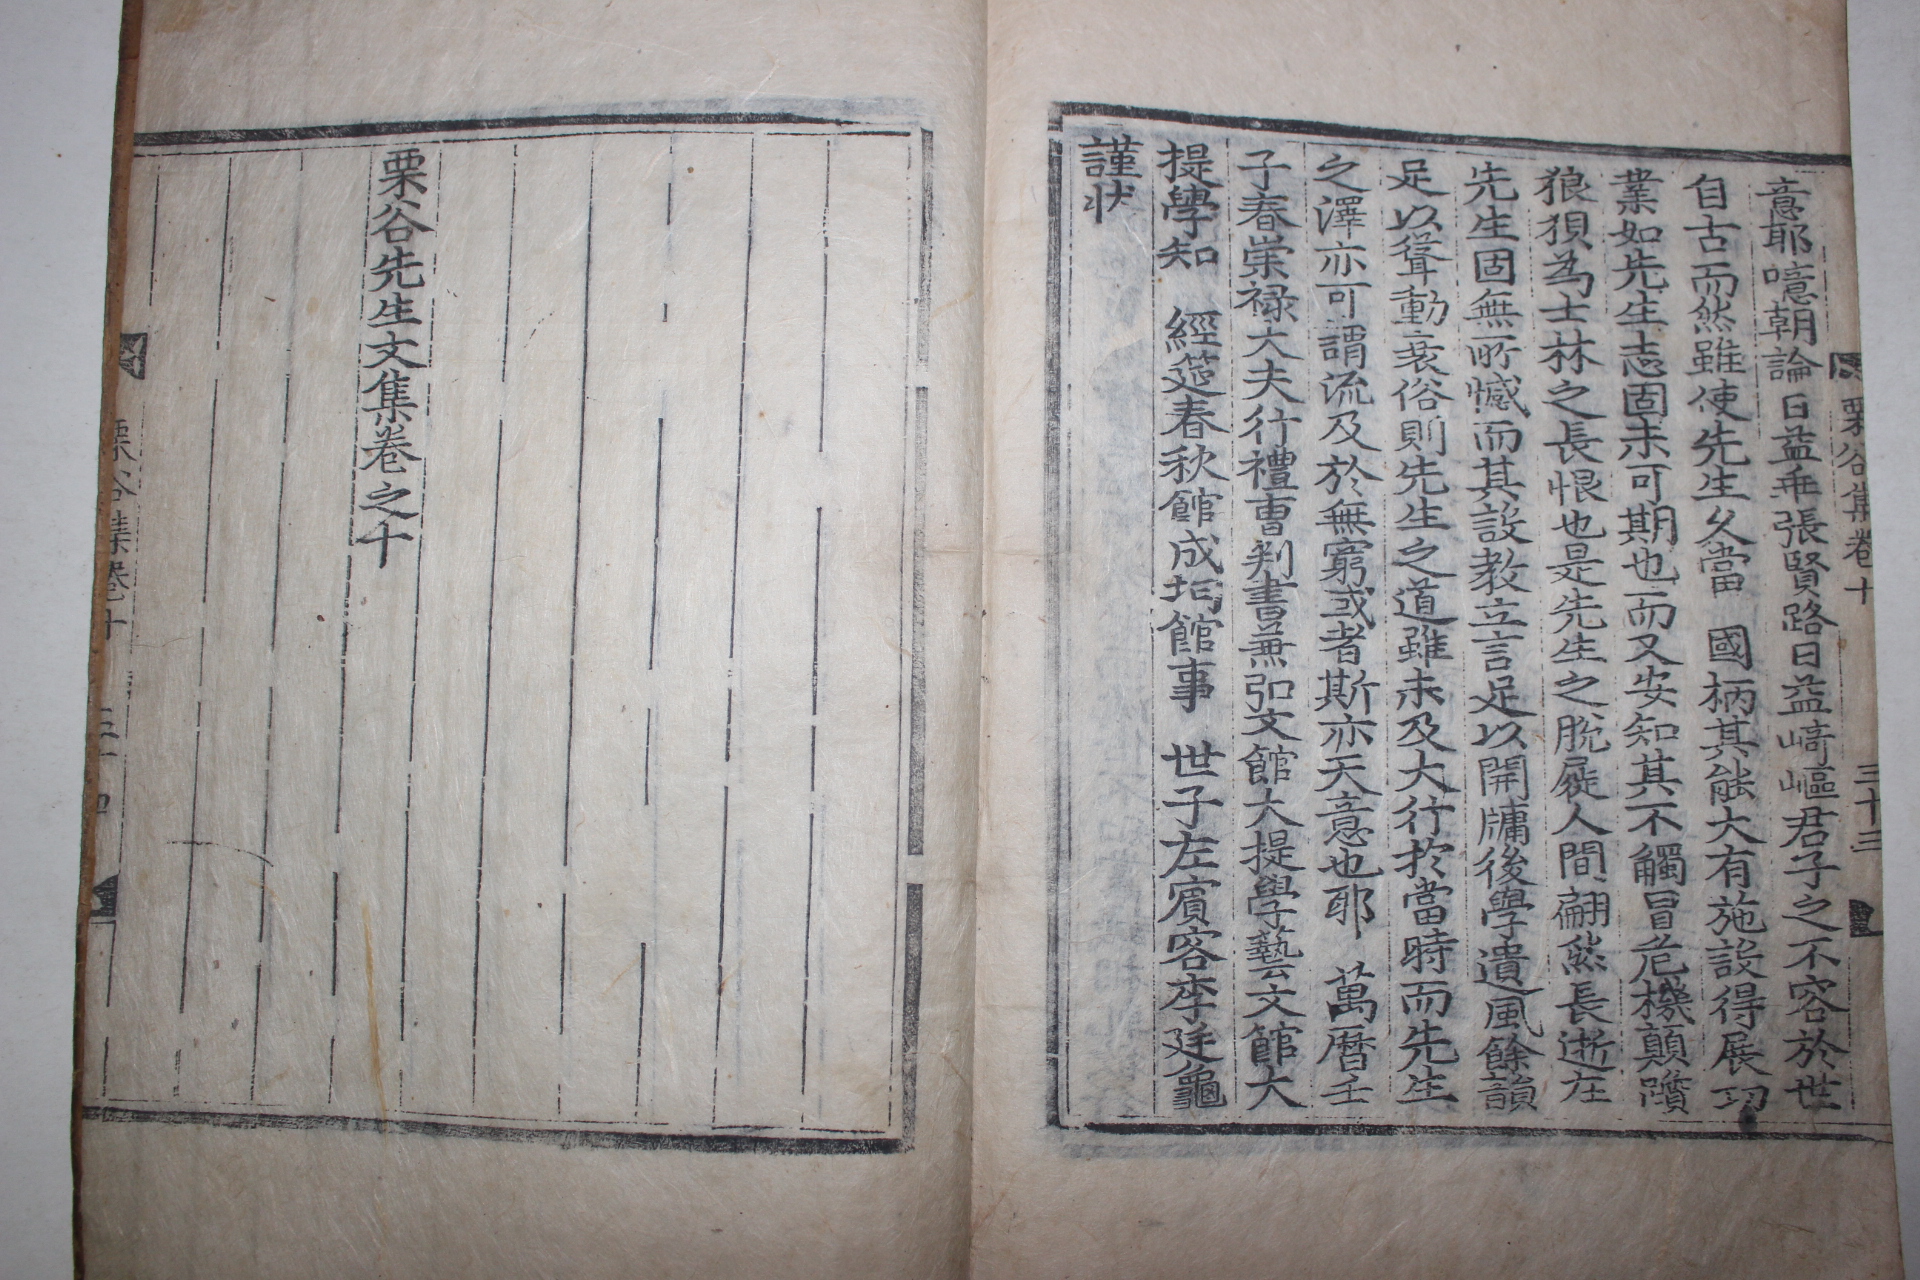 栗谷集卷十
三十三
意耶噫朝論日益乖張賢路日益崎嶇君子之不容於世
自古而然雖使先生久當 國柄其能大有施設得展功
業如先生志固未可期也而又安知其不觸冒危機顚躓
狼狽為士林之長恨也是先生之脫屣人間翩然長逝在
先生固無所憾而其設教立言足以開牖後學遺風餘韻
足以聳動衰俗則先生之道雖未及大行於當時而先生
之澤亦可謂流及於無窮或者斯亦天意也耶 萬曆壬
子春崇祿大夫行禮曹判書兼弘文館大提學藝文館大
提學知 經筵春秋館成均館事 世子左賓客李廷龜
謹狀
栗谷先生文集卷之十
栗谷集卷十
三十四